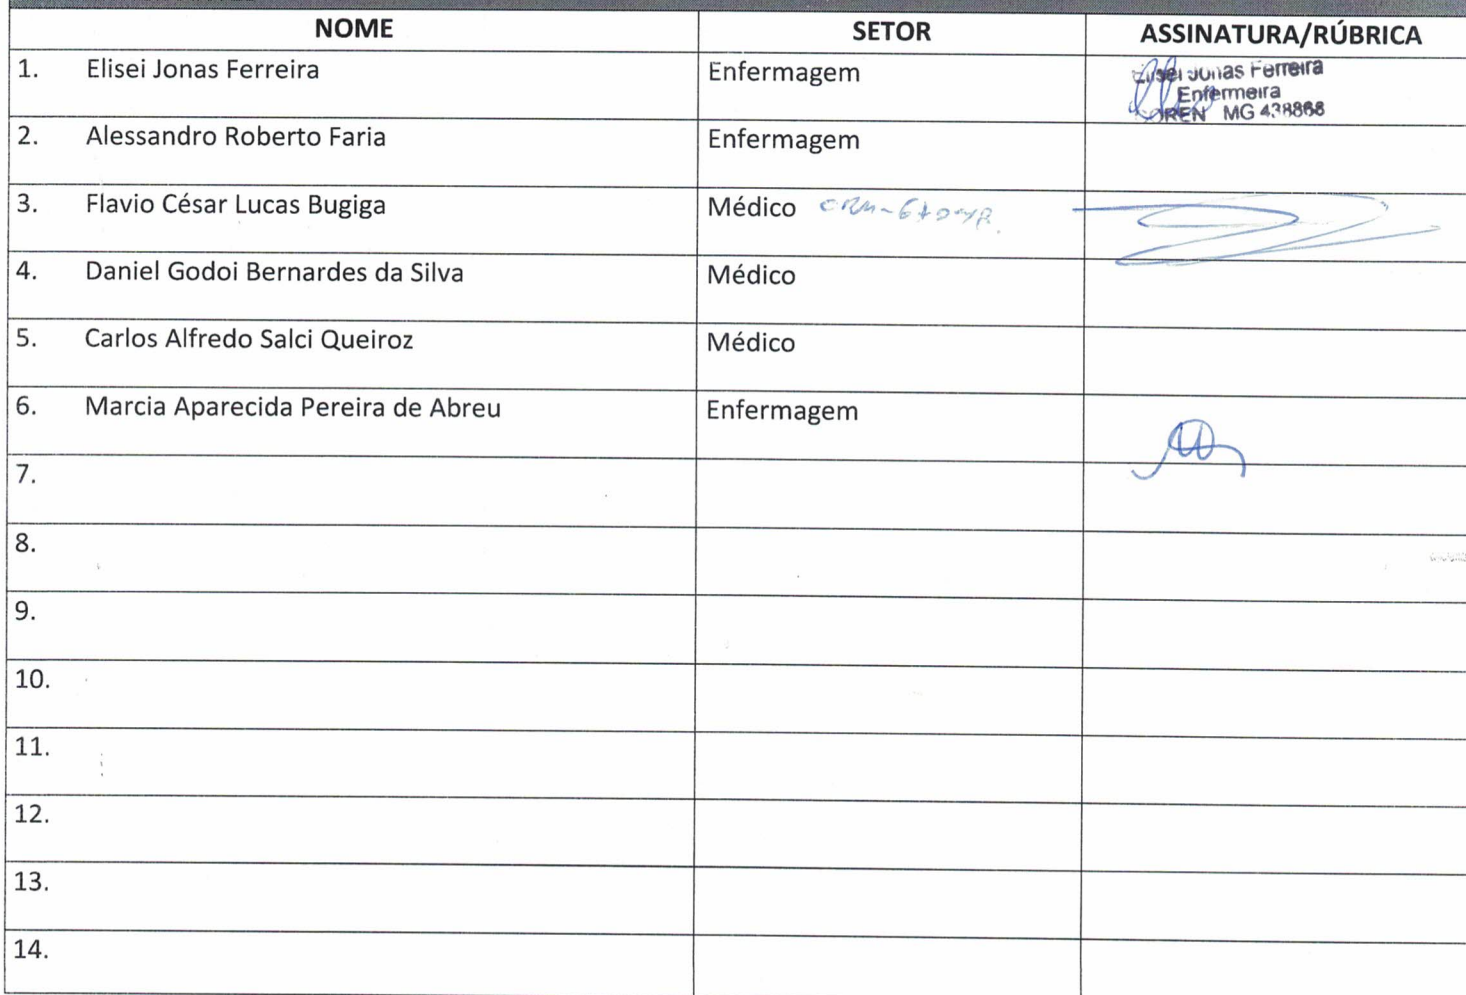 NOME SETOR ASSINATURA/RÚBRICA
1. Elisei Jonas Ferreira Enfermagem
Elisei Jonas Ferreira
Enfermeira
COREN MG 438868
2. Alessandro Roberto Faria Enfermagem
3. Flavio César Lucas Bugiga Médico
4. Daniel Godoi Bernardes da Silva Médico
5. Carlos Alfredo Salci Queiroz Médico
6. Marcia Aparecida Pereira de Abreu Enfermagem
7.
8.
9.
10.
11.
12.
13.
14.